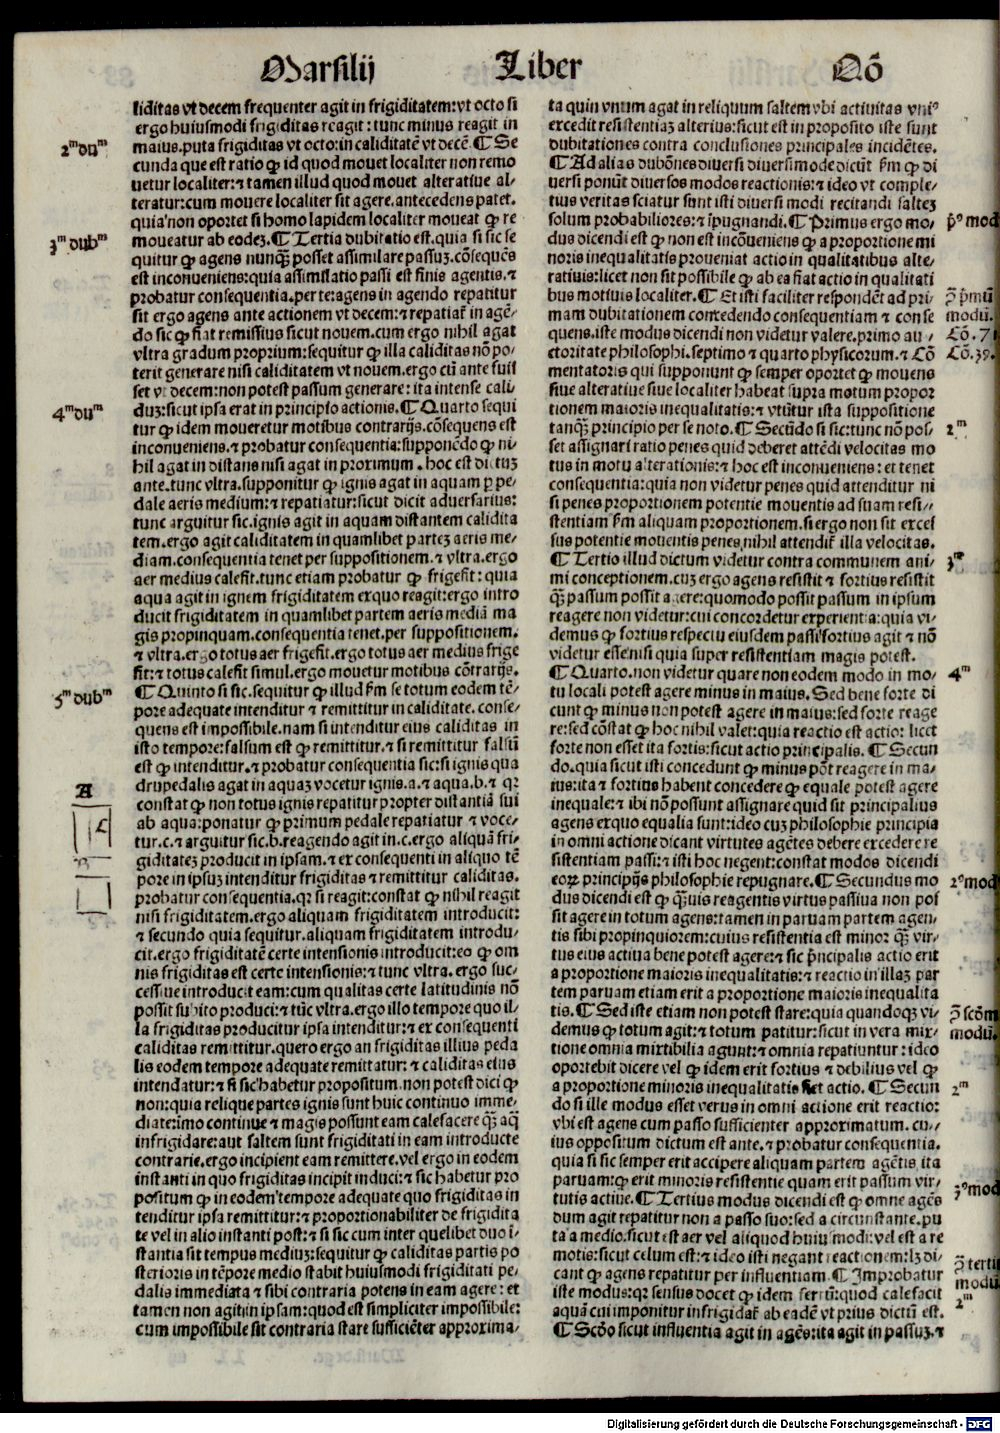 Marsilij Liber Qō
liditas vt decem frequenter agit in frigiditatem: vt octo si
ergo huiusmodi frigiditas reagit: tunc minus reagit in
maius. puta frigiditas vt octo: in caliditatē vt decē. ¶ Se
cunda que est ratio ꝙ id quod mouet localiter non remo
uetur localiter: ⁊ tamen illud quod mouet alteratiue al⸗
teratur: cum mouere localiter sit agere. antecedens patet.
quia non oportet si homo lapidem localiter moueat ꝙ re
moueatur ab eodeꝫ. ¶ Tertia dubitatio est. quia si sic se
quitur ꝙ agens nunqꝫ posset assimilare passuꝫ. cōsequēs
est inconueniens: quia assimilatio passi est finis agentis. ⁊
probatur consequentia. per te: agens in agendo repatitur
sit ergo agens ante actionem vt decem: ⁊ repatiat in agē⸗
do sic ꝙ fiat remissius sicut nouem. cum ergo nihil agat
vltra gradum proprium: sequitur ꝙ illa caliditas nō po⸗
terit generare nisi caliditatem vt nouem. ergo cū ante fuis
set vt decem: non potest passum generare: ita intense cali
duꝫ: sicut ipsa erat in principio actionis. ¶ Quarto sequi
tur ꝙ idem moueretur motibus contrarijs. cōsequens est
inconueniens. ⁊ probatur consequentia: supponēdo ꝙ ni⸗
hil agat in distans nisi agat in proximum. hoc est dictuꝫ
ante. tunc vltra. supponitur ꝙ ignis agat in aquam ꝑ pe⸗
dale aeris medium: ⁊ repatiatur: sicut dicit aduersarius:
tunc arguitur sic. ignis agit in aquam distantem calidita
tem. ergo agit caliditatem in quamlibet parteꝫ aeris me⸗
diam. consequentia tenet per suppositionem. ⁊ vltra. ergo
aer medius calefit. tunc etiam probatur ꝙ frigefit: quia
aqua agit in ignem frigiditatem ex quo reagit: ergo intro
ducit frigiditatem in quamlibet partem aeris mediā ma
gis propinquam. consequentia tenet. per suppositionem.
⁊ vltra. ergo totus aer frigefit. ergo totus aer medius frige
fit: ⁊ totus calefit simul. ergo mouetur motibus cōtrarijs.
¶ Quinto si sic. sequitur ꝙ illud ẜm se totum eodem tē⸗
pore adequate intenditur ⁊ remittitur in caliditate. conse⸗
quens est impossibile. nam si intenditur eius caliditas in
isto tempore: falsum est ꝙ remittitur. ⁊ si remittitur falsū
est ꝙ intenditur. ⁊ probatur consequentia sic: si ignis qua
drupedalis agat in aquaꝫ vocetur ignis. a. ⁊ aqua. b. ⁊ qꝛ
constat ꝙ non totus ignis repatitur propter distantiā sui
ab aqua: ponatur ꝙ primum pedale repatiatur ⁊ voce⸗
tur. c. ⁊ arguitur sic. b. reagendo agit in. c. ergo aliquā fri⸗
giditateꝫ producit in ipsam. ⁊ ex consequenti in aliquo tē
pore in ipsuꝫ intenditur frigiditas ⁊ remittitur caliditas.
probatur consequentia. qꝛ si reagit: constat ꝙ nihil reagit
nisi frigiditatem. ergo aliquam frigiditatem introducit:
⁊ secundo quia sequitur. aliquam frigiditatem introdu⸗
cit. ergo frigiditatē certe intensionis introducit: eo ꝙ om
nis frigiditas est certe intensionis: ⁊ tunc vltra. ergo suc⸗
cessiue introducit eam: cum qualitas certe latitudinis nō
possit subito produci: ⁊ tūc vltra. ergo illo tempore quo il⸗
la frigiditas producitur ipsa intenditur: ⁊ ex consequenti
caliditas remittitur. quero ergo an frigiditas illius peda
lis eodem tempore adequate remittatur: ⁊ caliditas eius
intendatur: ⁊ si sic habetur propositum. non potest dici ꝙ
non: quia relique partes ignis sunt huic continuo imme⸗
diate: imo continue ⁊ magis possunt eam calefacere qꝫ aq̄
infrigidare: aut saltem sunt frigiditati in eam introducte
contrarie. ergo incipient eam remittere. vel ergo in eodem
instanti in quo frigiditas incipit induci: ⁊ sic habetur pro
positum ꝙ in eodem tempore adequate quo frigiditas in
tenditur ipsa remittitur: ⁊ proportionabiliter de frigidita
te vel in alio instanti post: ⁊ si sic cum inter quelibet duo ī⸗
stantia sit tempus mediuꝫ: sequitur ꝙ caliditas partis po
sterioris in tēpore medio stabit huiusmodi frigiditati pe⸗
dalis immediata ⁊ sibi contraria potens in eam agere: et
tamen non agit in ipsam: quod est simpliciter impossibile:
cum impossibile sit contraria stare sufficiēter approxima⸗
2ᵐ duᵐ
3ᵐ dubᵐ
4ᵐ duᵐ
5ᵐ dubᵐ
A
c
ta quin vnum agat in reliquum saltem vbi actiuitas vniꝰ
excedit resistentiaꝫ alterius: sicut est in proposito iste sunt
dubitationes contra conclusiones principales incidētes.
¶ Ad alias dubōnes diuersi diuersimode dicūt ẜm ꝙ di
uersi ponūt diuersos modos reactionis: ⁊ ideo vt comple⸗
tius veritas sciatur sunt isti diuersi modi recitandi salteꝫ
solum probabiliores: ⁊ īpugnandi. ¶ Primus ergo mo⸗
dus dicendi est ꝙ non est incōueniens ꝙ a proportione mi
noris inequalitatis proueniat actio in qualitatibus alte⸗
ratiuis: licet non sit possibile ꝙ ab ea fiat actio in qualitati
bus motiuis localiter. ¶ Et isti faciliter respondēt ad pri⸗
mam dubitationem concedendo consequentiam ⁊ conse
quens. iste modus dicendi non videtur valere. primo au⸗
ctoritate philosophi. septimo ⁊ quarto physicorum. ⁊ Cō
mentatoris qui supponunt ꝙ semper oportet ꝙ mouens
siue alteratiue siue localiter habeat supra motum propor
tionem maioris inequalitatis: ⁊ vtūtur ista suppositione
tanqꝫ principio per se noto. ¶ Secūdo si sic: tunc nō pos⸗
set assignari ratio penes quid deberet attēdi velocitas mo
tus in motu alterationis: ⁊ hoc est inconueniens: et tenet
consequentia: quia non videtur penes quid attenditur ni
si penes proportionem potentie mouentis ad suam resi⸗
stentiam ẜm aliquam proportionem. si ergo non sit exces
sus potentie mouentis penes nihil attendit illa velocitas.
¶ Tertio illud dictum videtur contra communem ani⸗
mi conceptionem. cuꝫ ergo agens resistit ⁊ fortius resistit
qꝫ passum possit agere: quomodo possit passum in ipsum
reagere non videtur: cui concordetur experientia: quia vi⸗
demus ꝙ fortius respectu eiusdem passi fortius agit ⁊ nō
videtur esse nisi quia super resistentiam magis potest.
¶ Quarto. non videtur quare non eodem modo in mo⸗
tu locali potest agere minus in maius. Sed bene forte di
cunt ꝙ minus non potest agere in maius: sed forte reage
re: sed cōstat ꝙ hoc nihil valet: quia reactio est actio: licet
forte non esset ita fortis: sicut actio principalis. ¶ Secun
do. quia sicut isti concedunt ꝙ minus pōt reagere in ma⸗
ius: ita ⁊ fortius habent concedere ꝙ equale potest agere
inequale: ⁊ ibi nō possunt assignare quid sit principalius
agens ex quo equalia sunt: ideo cuꝫ philosophie principia
in omni actione dicant virtutes agētes debere excedere re
sistentiam passi: ⁊ isti hoc negent: constat modos dicendi
eoꝝ principijs philosophie repugnare. ¶ Secundus mo
dus dicendi est ꝙ qꝫuis reagentis virtus passiua non pos
sit agere in totum agens: tamen in paruam partem agen⸗
tis sibi propinquiorem: cuius resistentia est minor qꝫ vir⸗
tus eius actiua bene potest agere: ⁊ sic prīcipalis actio erit
a proportione maioris inequalitatis: ⁊ reactio in illaꝫ par
tem paruam etiam erit a proportione maioris inequalita
tis. ¶ Sed iste etiam non potest stare: quia quandoqꝫ vi⸗
demus ꝙ totum agit: ⁊ totum patitur: sicut in vera mix⸗
tione omnia mixtibilia agunt: ⁊ omnia repatiuntur: ideo
oportebit dicere vel ꝙ idem erit fortius ⁊ debilius vel ꝙ
a proportione minoris inequalitatis fiet actio. ¶ Secun
do si ille modus esset verus in omni actione erit reactio:
vbi est agens cum passo sufficienter approximatum. cu⸗
ius oppositum dictum est ante. ⁊ probatur consequentia.
quia si sic semper erit accipere aliquam partem agētis ita
paruam: ꝙ erit minoris resistentie quam erit passum vir⸗
tutis actiue. ¶ Tertius modus dicendi est ꝙ omne agēs
dum agit repatitur non a passo suo: sed a circunstante. pu
ta a medio. sicut est aer vel aliquod huiusmodi: vel est a re
motis: sicut celum est: ⁊ ideo isti negant reactionem: lꝫ di⸗
cant ꝙ agens repatitur per influentiam. ¶ Improbatur
iste modus: qꝛ sensus docet ꝙ idem ferrū: quod calefacit
aquā cui imponitur infrigidat ab eadē vt prius dictū est.
¶ Scdo sicut influentia agit in agēs: ita agit in passuꝫ. ⁊
pꝰ mod
ꝯ pͥmū
modū.
Cō. 7
Cō. 39.
2ᵐ
3ᵐ
4ᵐ
2ꝰ mod
ꝯ scōm
modū.
2ᵐ
3ꝰ mod
ꝯ terti
modū
2ᵐ
Digitalisierung gefördert durch die Deutsche Forschungsgemeinschaft - DFG